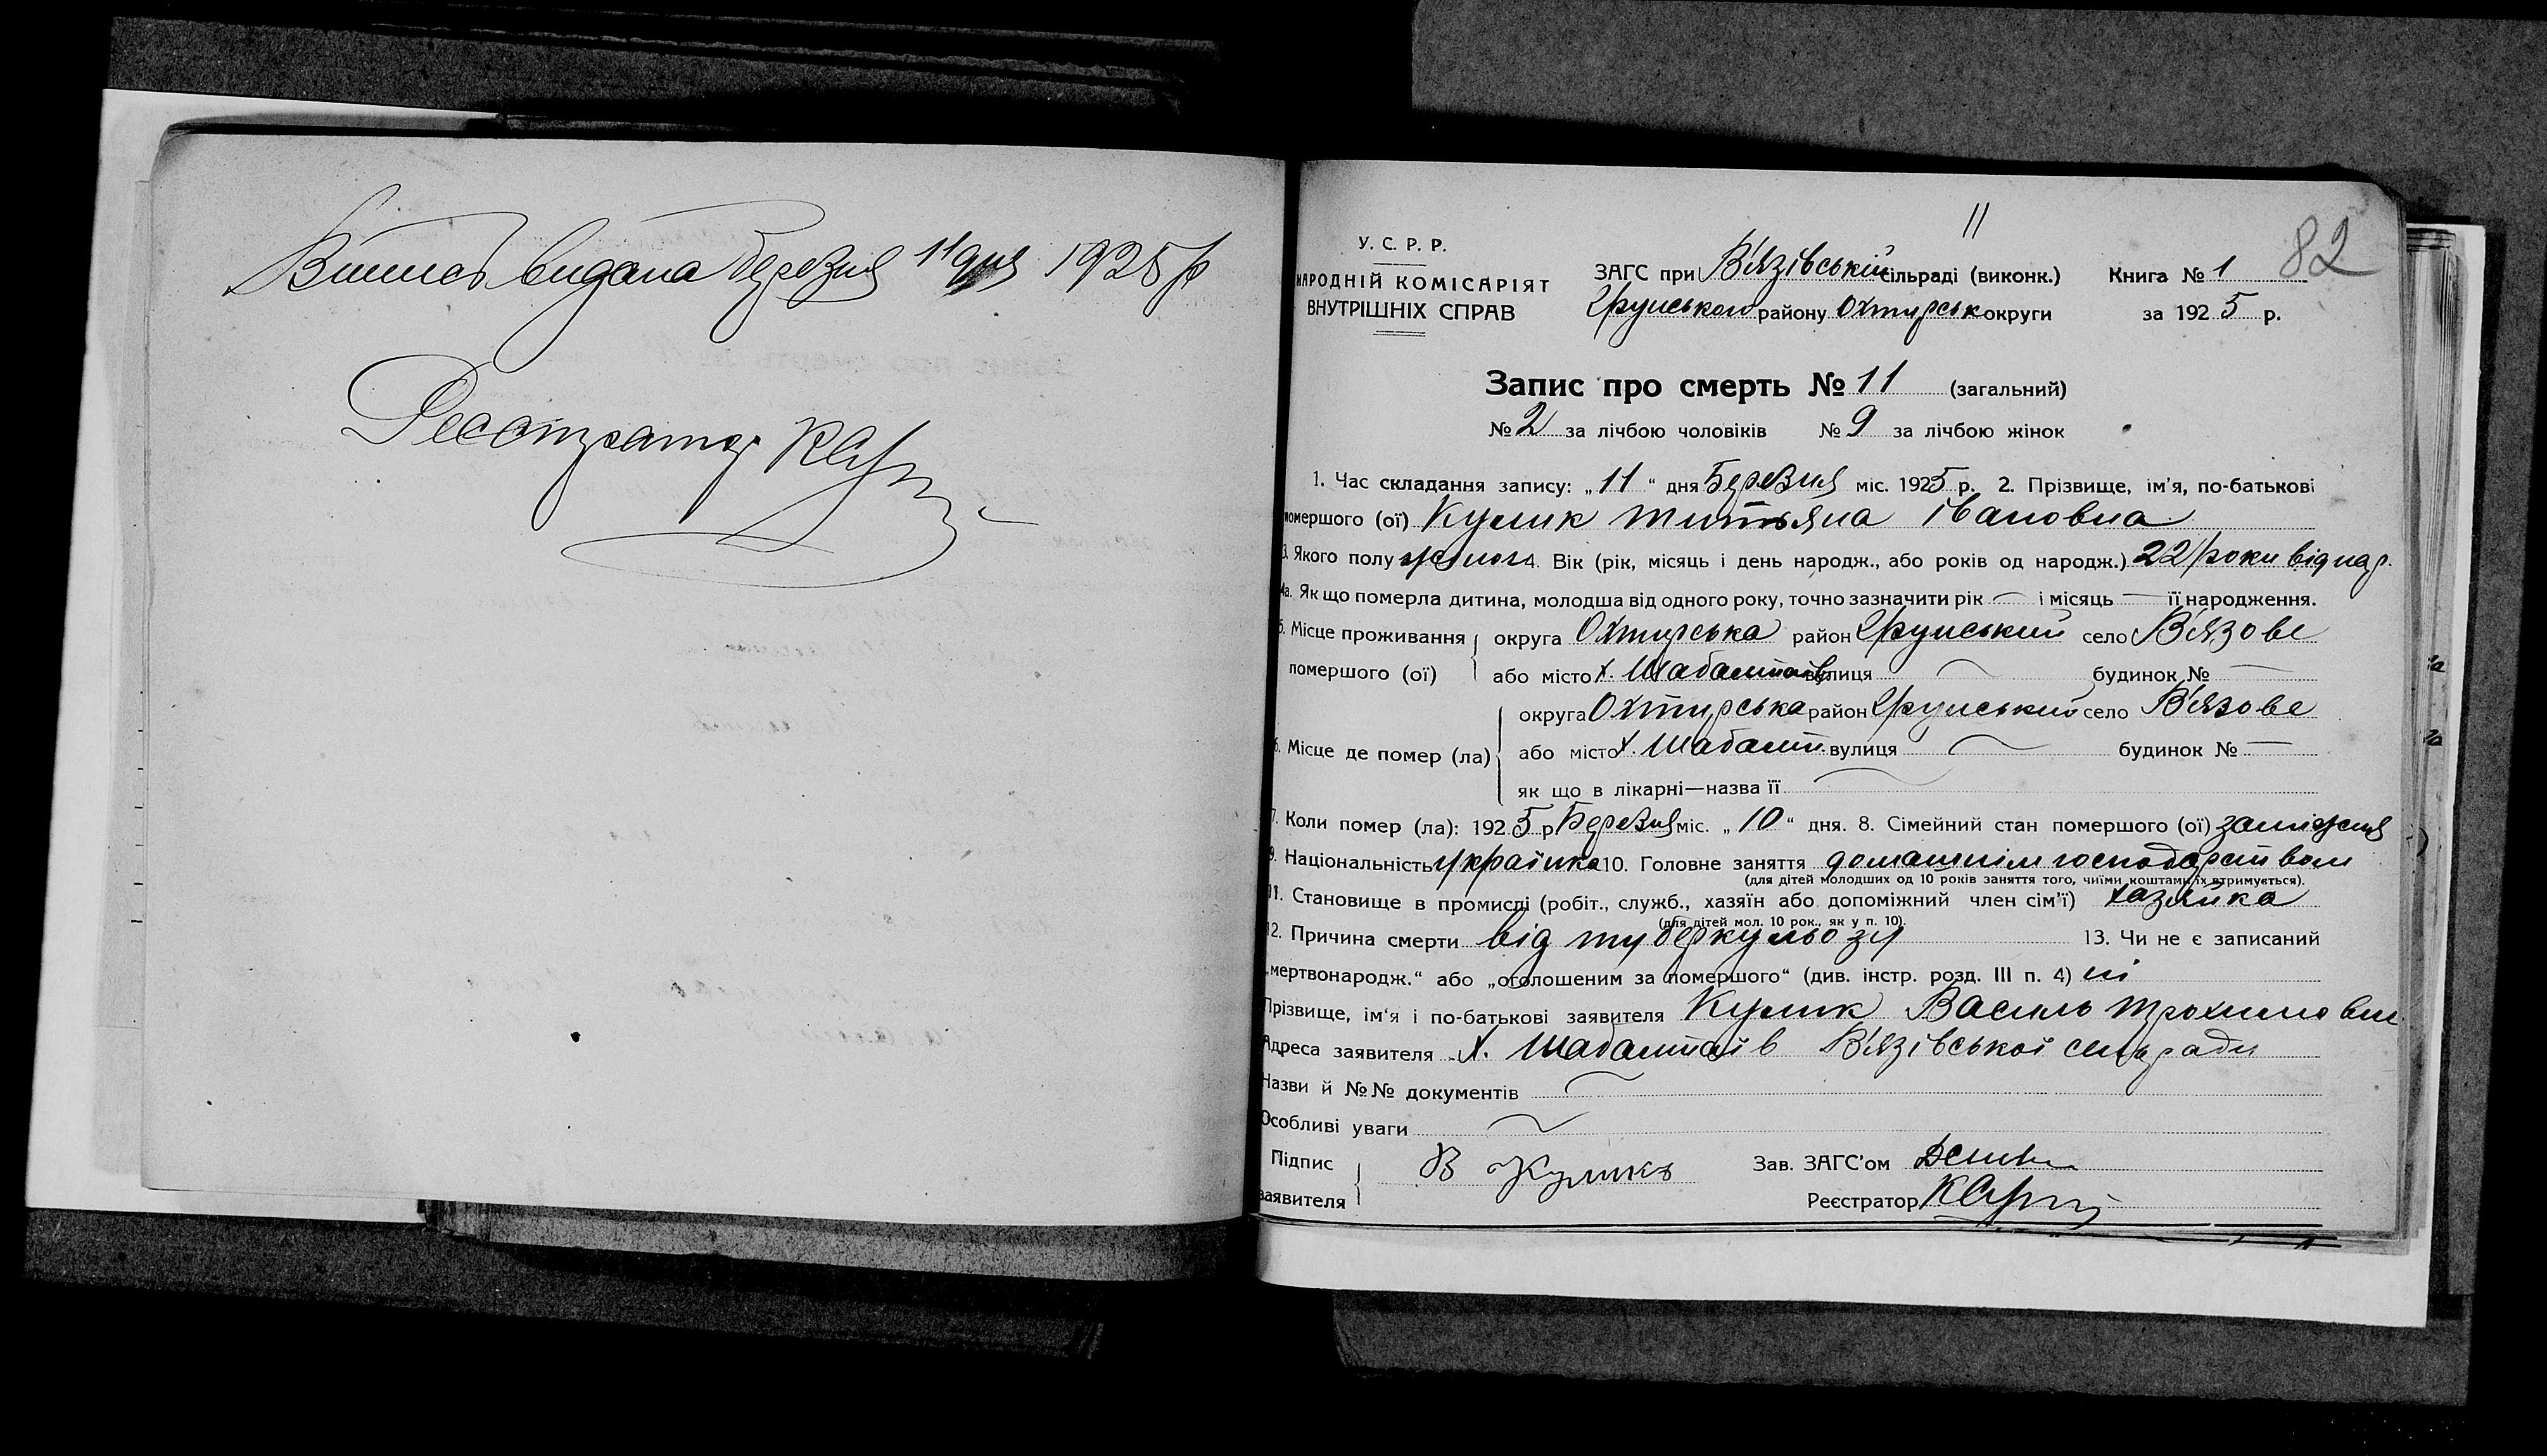 Виписъ видана березня 11 дня 1925 р
Реєстратор
11
82
У. С. Р. Р.
НАРОДНІЙ КОМІСАРІЯТ
ВНУТРІШНІХ СПРАВ
ЗАГС при В'язівській сільраді (виконк.) Книга № 1
Грунського району Охтирськ округи за 1925 р.
Запис про смерть № 11 (загальний)
№ 2 за лічбою чоловіків № 9 за лічбою жінок
1. Час складання запису: „11“ дня Березня міс. 1925 р. 2. Прізвище, ім'я, по-батькові
помершого (ої) Кулик Титьяна Івановна
3. Якого полу жіночого 4. Вік (рік, місяць і день народж., або років од народж.) 22 роки від нар.
4а. Як що померла дитина, молодша від одного року, точно зазначити рік — і місяць — її народження.
5. Місце проживання округа Охтирська район Грунський село В'язове
помершого (ої) або місто х. Шабалтаїв вулиця — будинок № —
округа Охтирська район Грунський село В'язове
6. Місце де помер (ла) або місто х. Шабалт. вулиця — будинок № —
як що в лікарні—назва її —
7. Коли помер (ла): 1925 р Березня міс. „10“ дня. 8. Сімейний стан помершого (ої) заміжня
9. Національність українка 10. Головне заняття домашнім господарством
(для дітей молодших од 10 років заняття того, чиїми коштами їх втримується).
11. Становище в промислі (робіт., служб., хазяїн або допоміжний член сім'ї) хазяйка
(для дітей мол. 10 рок., як у п. 10).
12. Причина смерти від туберкульозу 13. Чи не є записаний
„мертвонародж.“ або „оголошеним за помершого“ (див. інстр. розд. III п. 4) ні
Прізвище, ім'я і по-батькові заявителя Кулик Василь Трохимови
Адреса заявителя х. Шабалтаїв В'язівської сільради
Назви й №№ документів —
Особливі уваги —
Підпис заявителя В Куликъ Зав. ЗАГС'ом
Реєстратор